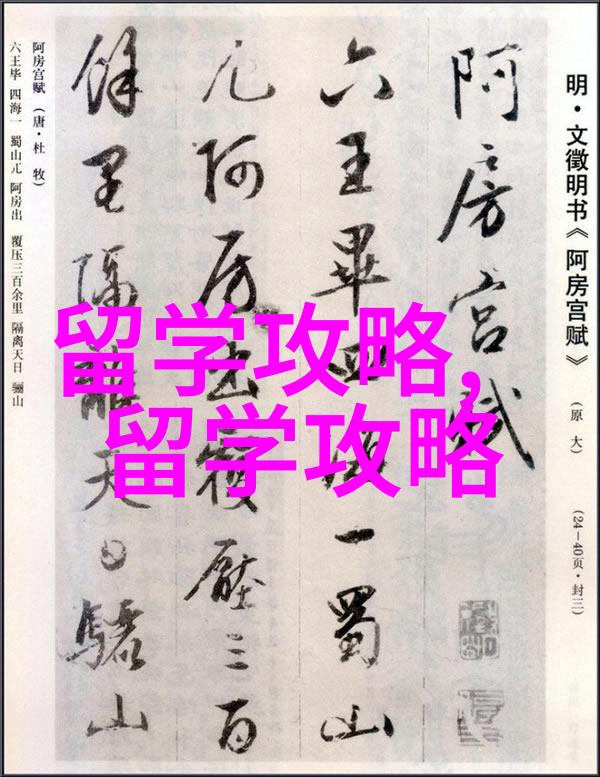 明·文徵明书《阿房宫赋》
(原大)
(24－40页·封三)
阿房宫赋
六王畢四海一蜀山
兀阿房出覆壓三百
餘里隔離天日驪山
阿房宫赋（唐·杜 牧）
六王毕 四海一 蜀山兀 阿房出 覆压三百余里 隔离天日 骊山
留学攻略,
留学攻略